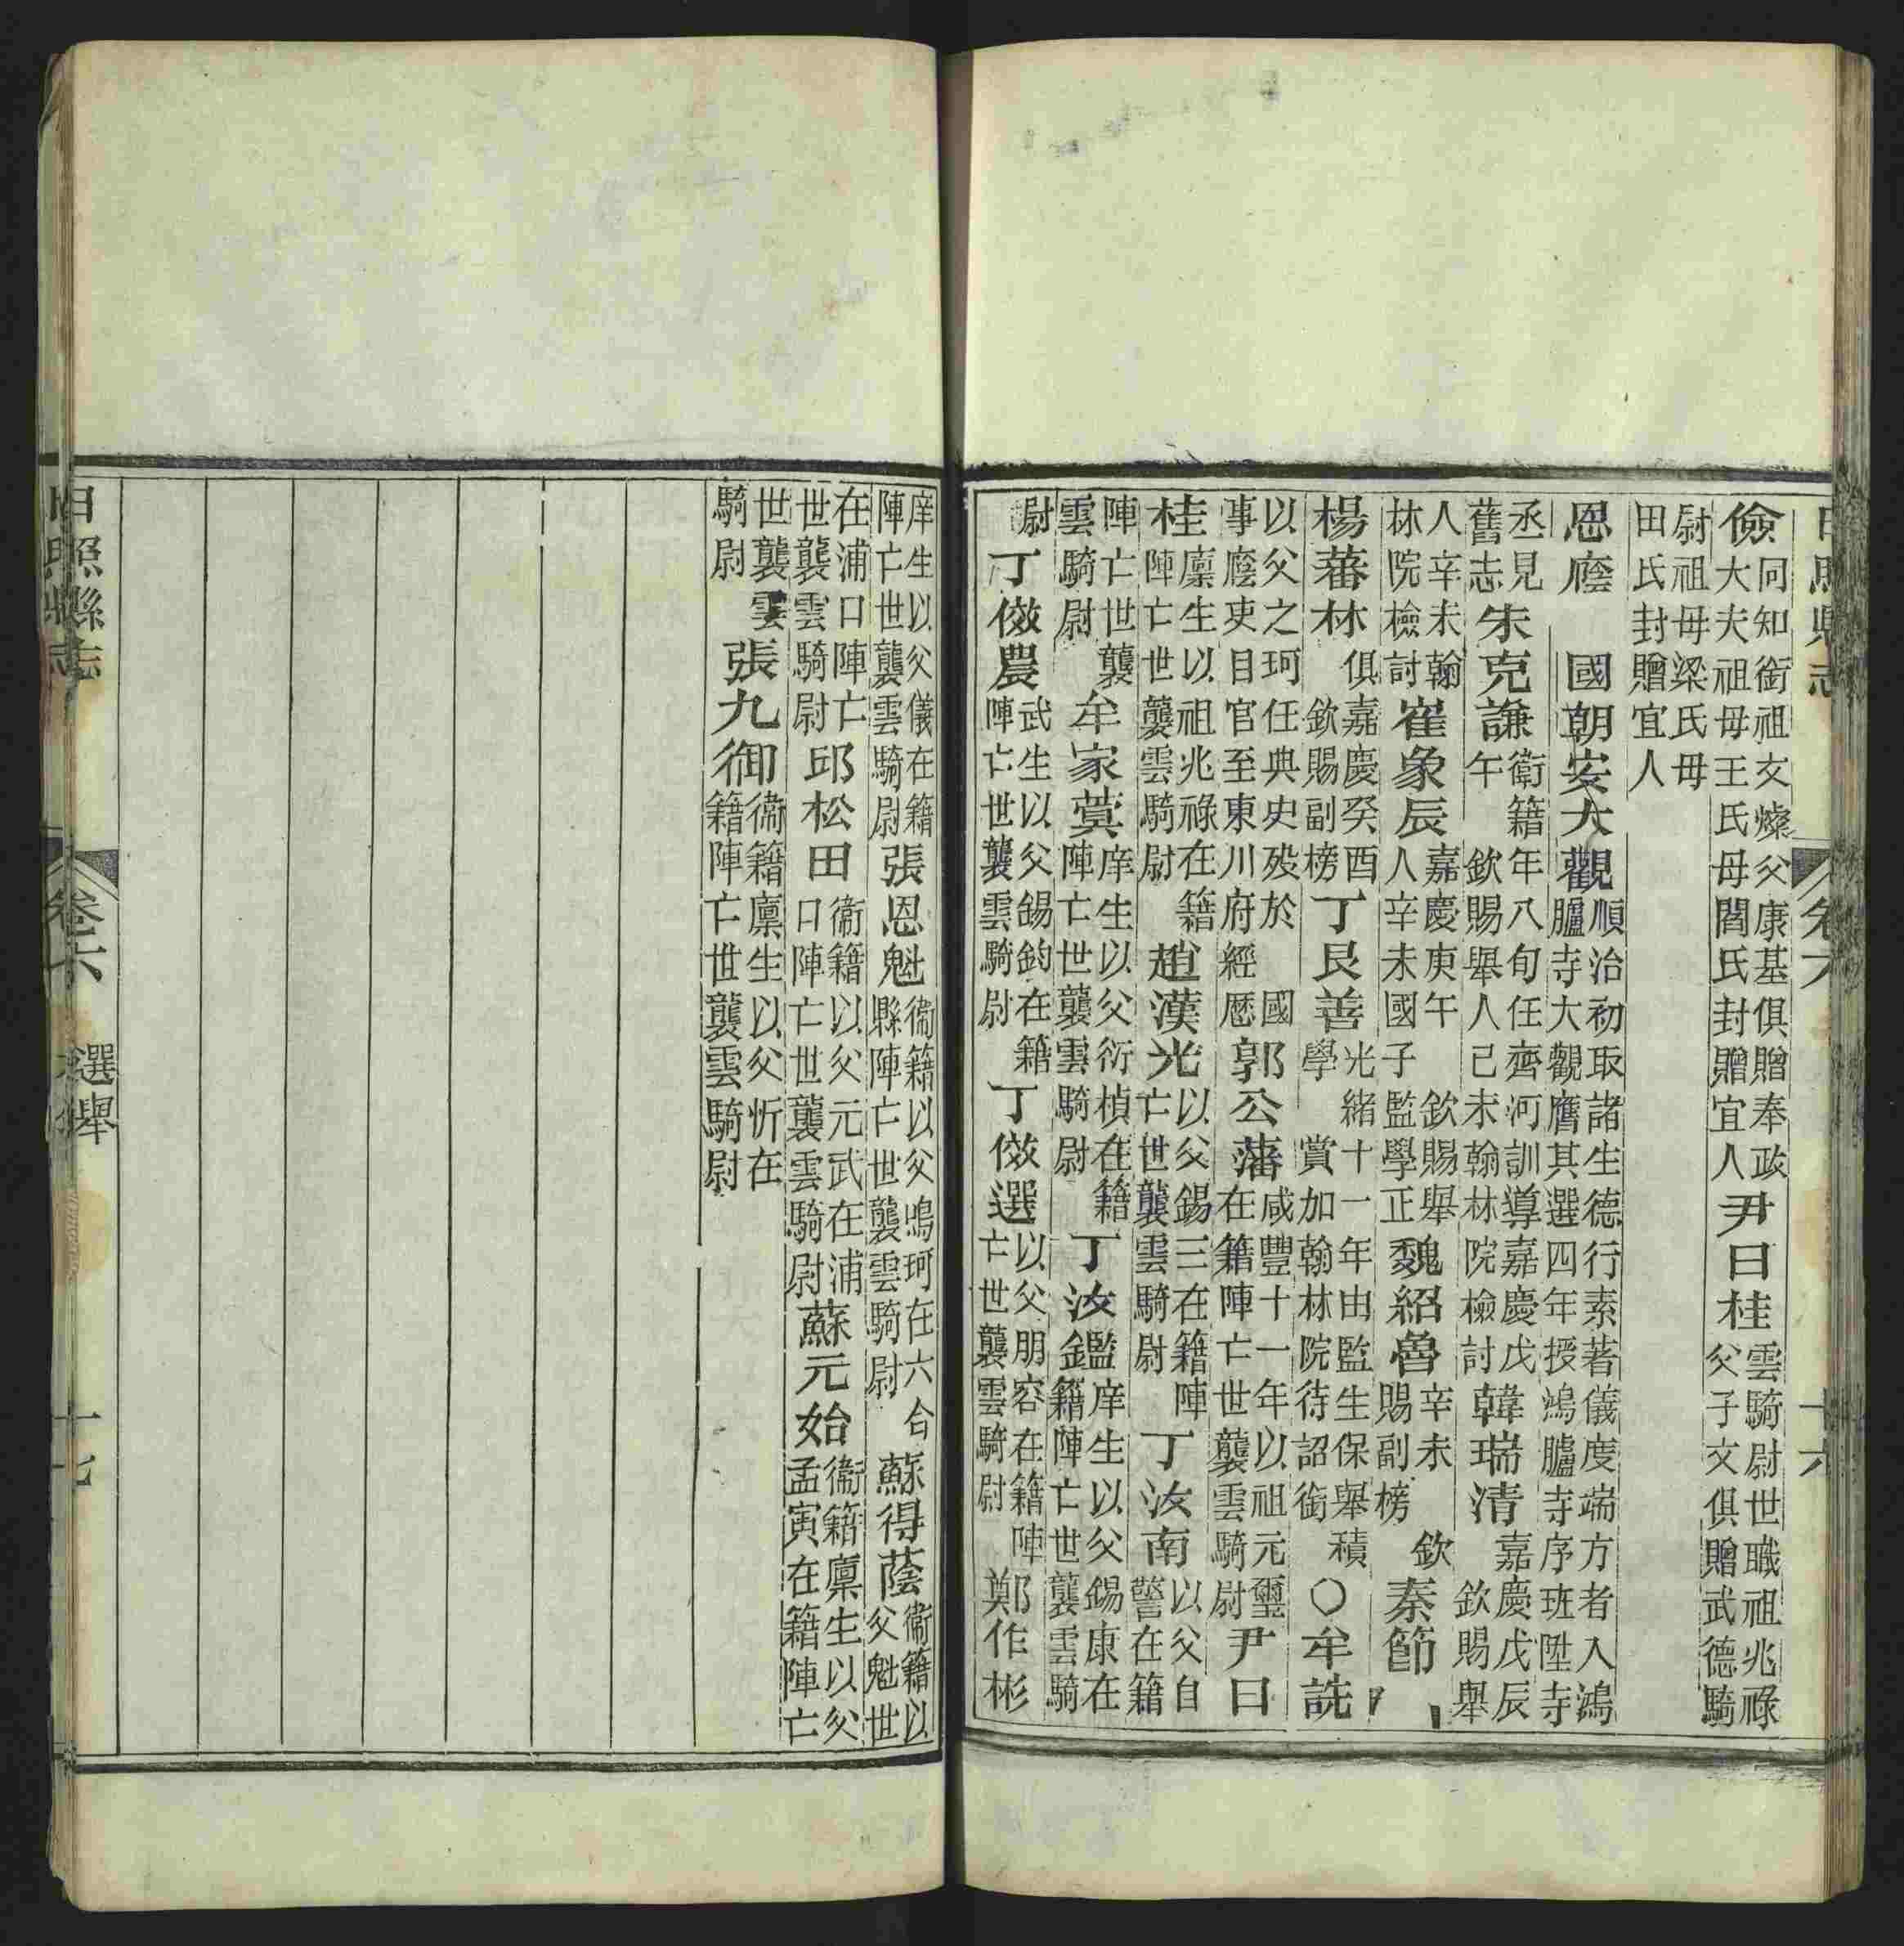 儉同知銜祖文燦父康基俱贈奉政大夫祖母王氏母閻氏封贈宜人尹日桂雲騎尉世職祖兆祿父子文俱贈武德騎
尉祖母梁氏母田氏封贈宜人
恩廕 國朝安大觀順治初取諸生德行素著儀度端方者入鴻臚寺大觀膺其選四年授鴻臚寺序班陞寺
丞見舊志朱克謙衛籍年八旬任齊河訓導嘉慶戊午 欽賜舉人己未翰林院檢討韓瑞清嘉慶戊辰欽賜舉
人辛未翰林院檢討崔象辰嘉慶庚午 欽賜舉人辛未國子監學正魏紹魯辛未 欽賜副榜秦節
楊蕃林俱嘉慶癸酉欽賜副榜丁艮善光緒十一年由監生保舉積學 賞加翰林院待詔銜〇牟詵
以父之珂任典史歿於 國事廕吏目官至東川府經歷郭公藩咸豐十一年以祖元璽在籍陣亡世襲雲騎尉尹日
桂廩生以祖兆祿在籍陣亡世襲雲騎尉趙漢光以父錫三在籍陣亡世襲雲騎尉丁汝南以父自警在籍
陣亡世襲雲騎尉牟家蓂庠生以父衍楨在籍陣亡世襲雲騎尉丁汝鑑庠生以父錫康在籍陣亡世襲雲騎
尉丁傚農武生以父錫鈞在籍陣亡世襲雲騎尉丁傚選以父朋容在籍陣亡世襲雲騎尉鄭作彬
庠生以父儀在籍陣亡世襲雲騎尉張恩魁衞籍以父鳴珂在六合縣陣亡世襲雲騎尉蘇得蔭衞籍以父魁世
在浦口陣亡世襲雲騎尉邱松田衞籍以父元武在浦口陣亡世襲雲騎尉蘇元始衞籍廩生以父孟寅在籍陣亡
世襲雲騎尉張九御衞籍廩生以父忻在籍陣亡世襲雲騎尉
日照縣志 卷六 選舉 十七